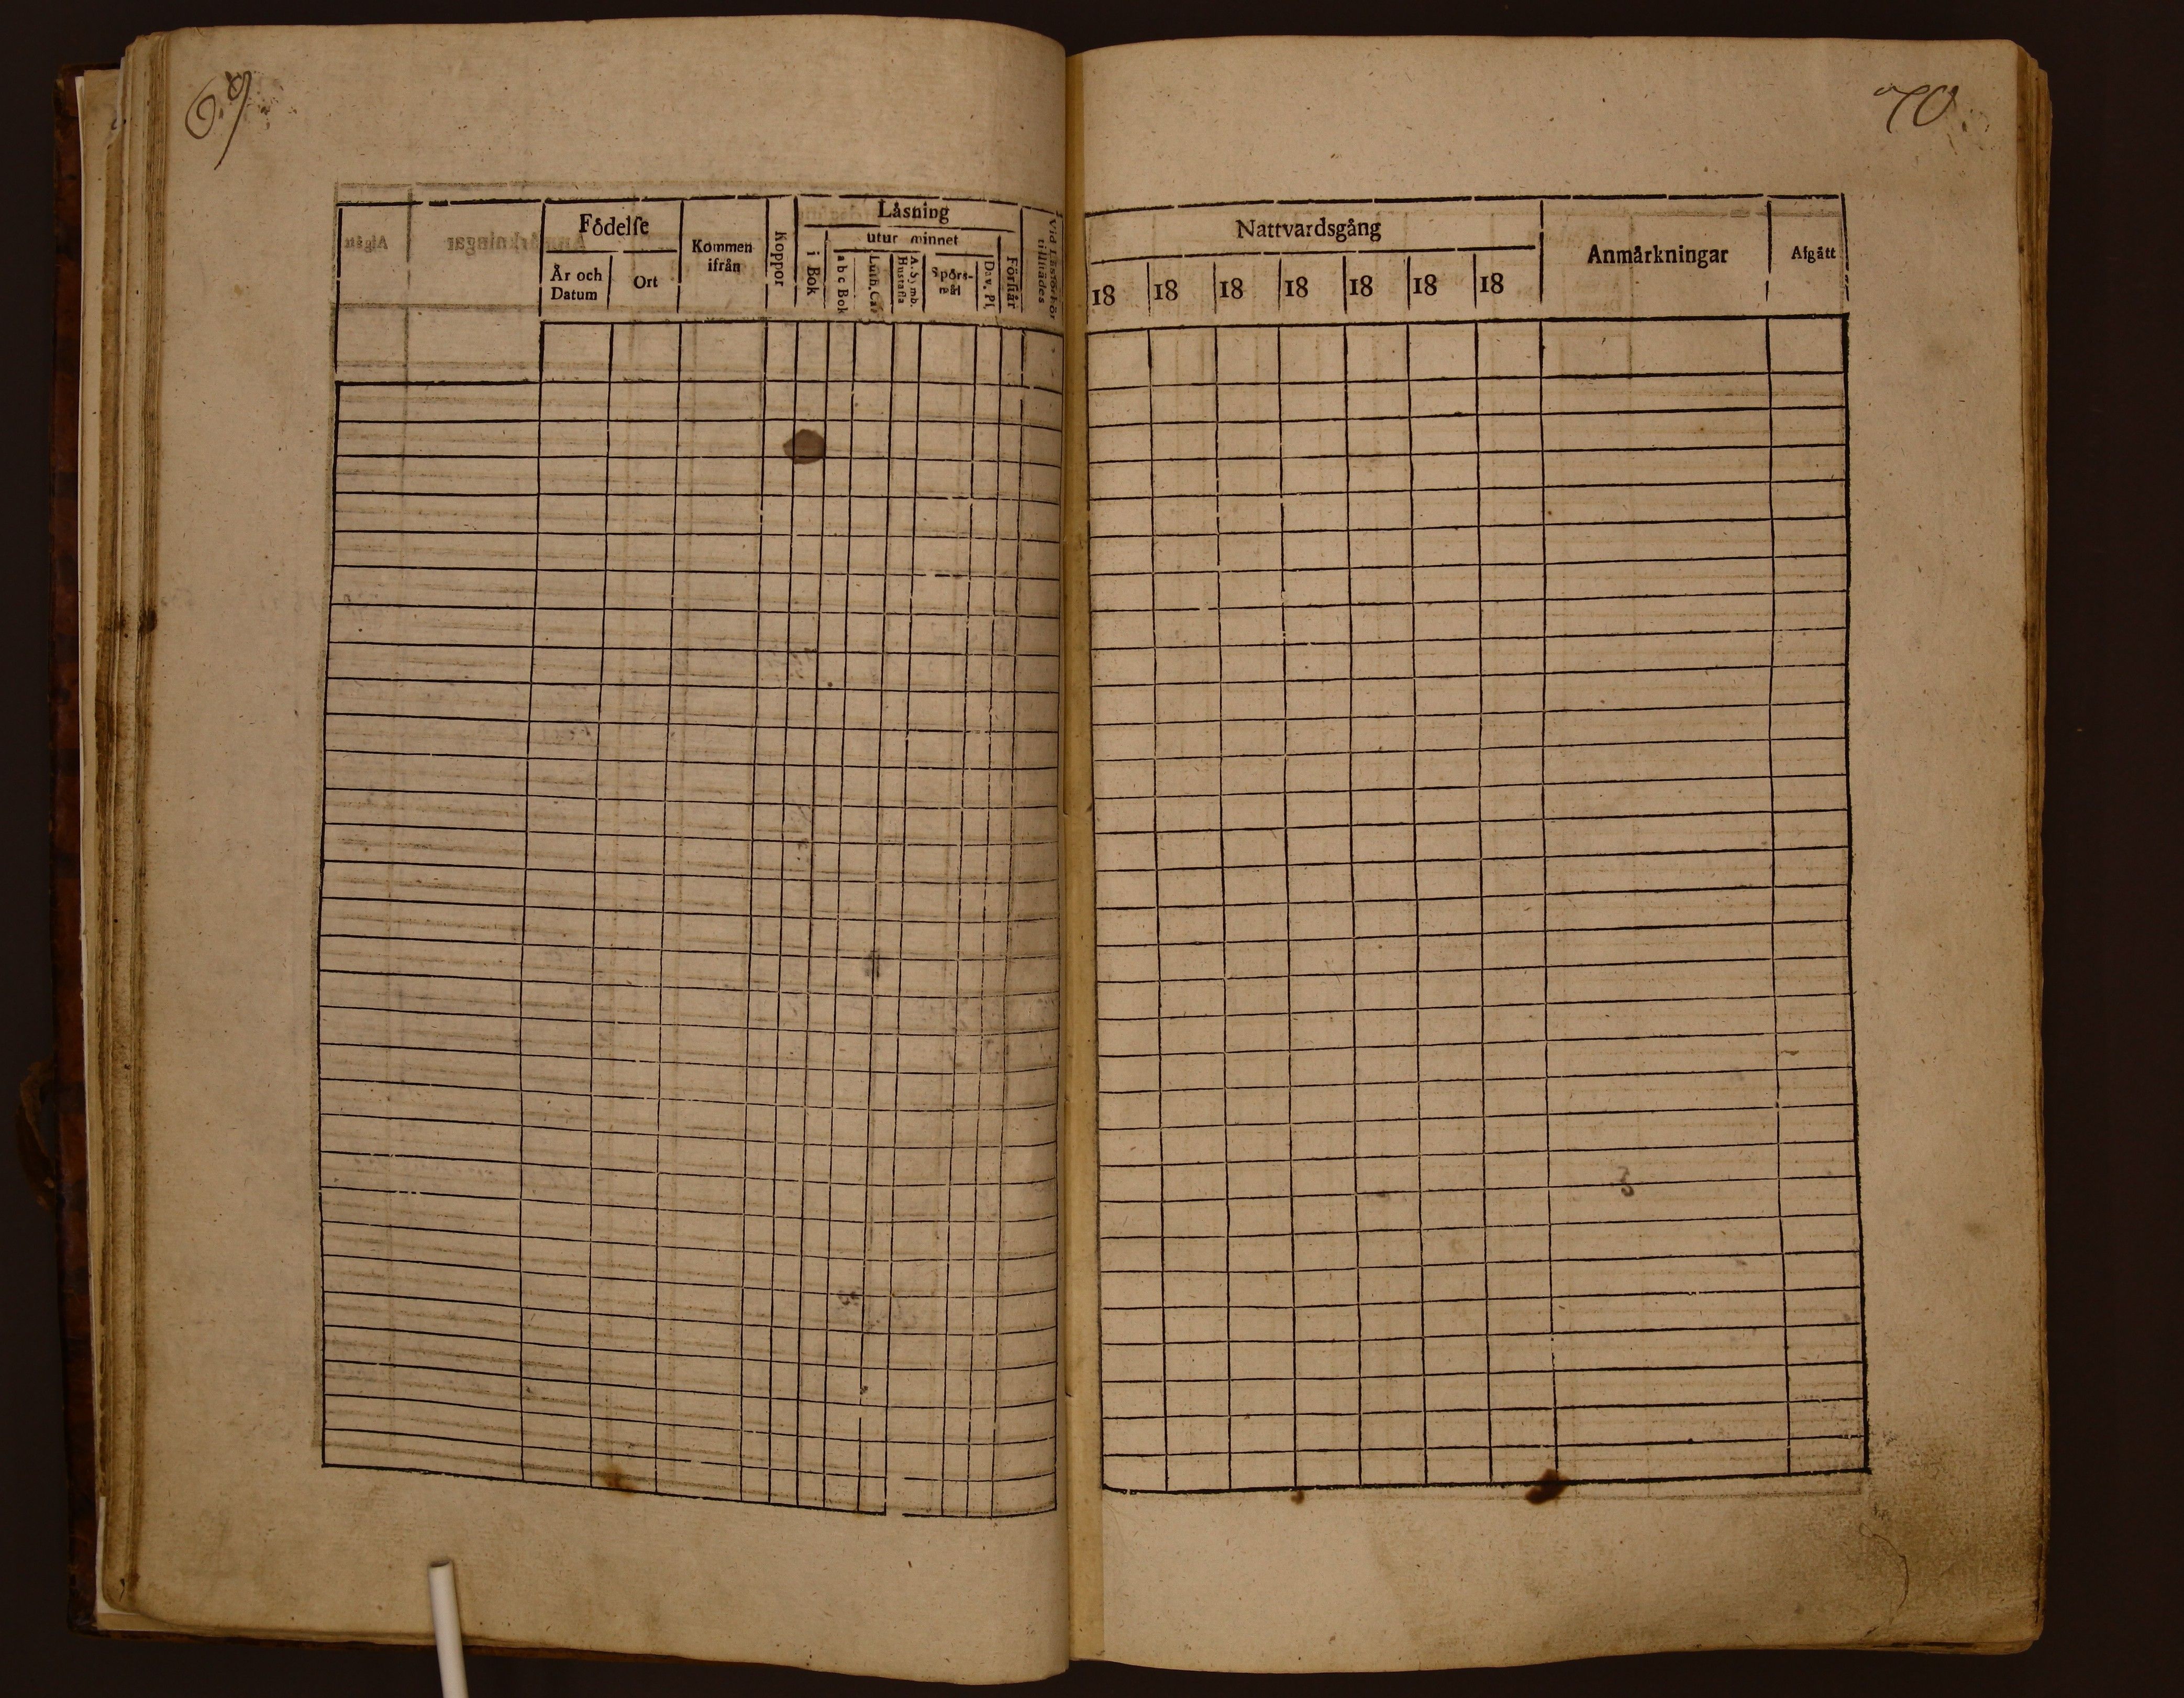 69
70.
Födelse
År och Datum
Ort
Kommen ifrån
Koppor
Läsning
i Bok
utur minnet
a b c Bok
Luth. Cat.
A. Symb. Hustafla
Spörs-mål
Dav. Ps.
Förstår
Vid Läsförhör tillstädes
Nattvardsgång
18 18 18 18 18 18 18
Anmärkningar
Afgått